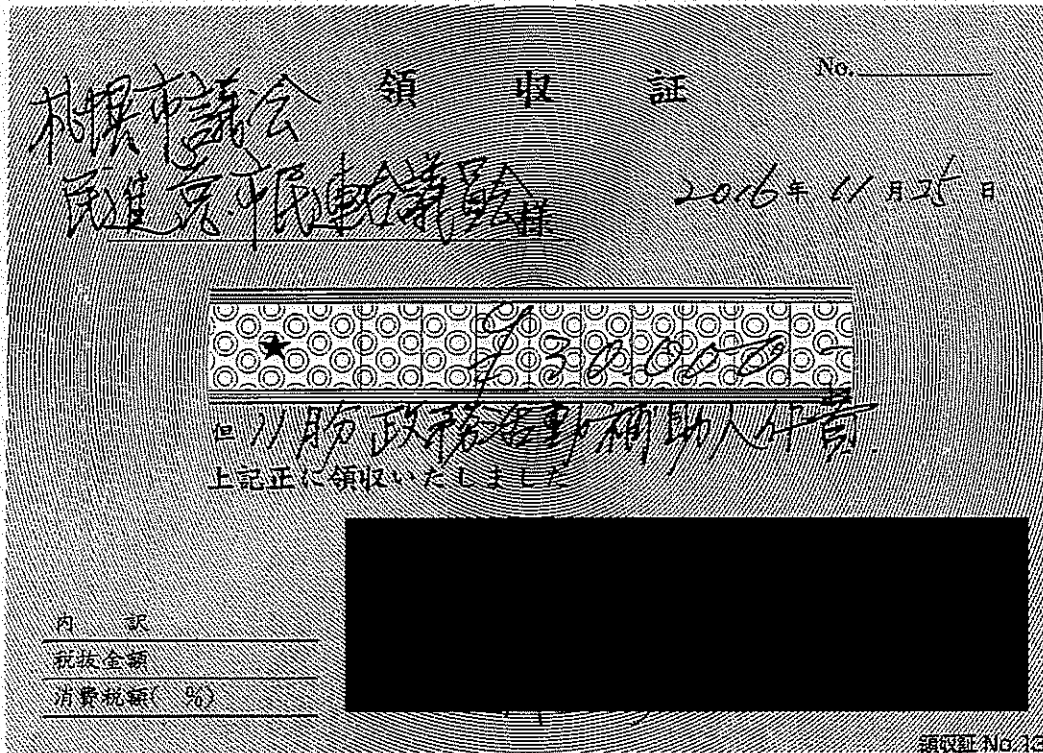 領収証
No.
札幌市議会
民進党市民連合議員会様
2016年11月25日
★ ¥30,000-
但 11月分政務活動補助人件費
上記正に領収いたしました
内訳
税抜金額
消費税額( %)
領収証 No.12